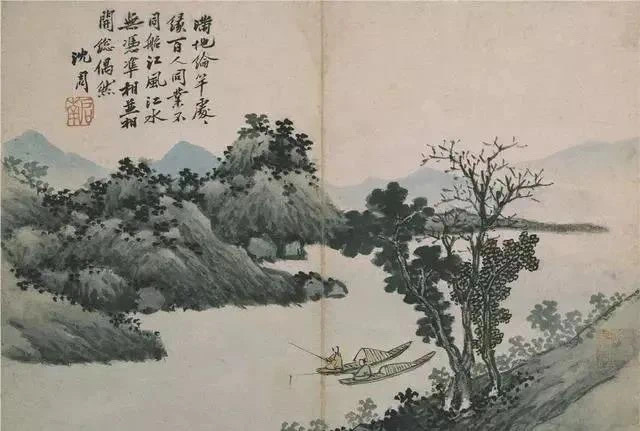 滿地綸竿處〻
緣百人同業不
同船江風江水
無憑準相並相
開總偶然
沈周